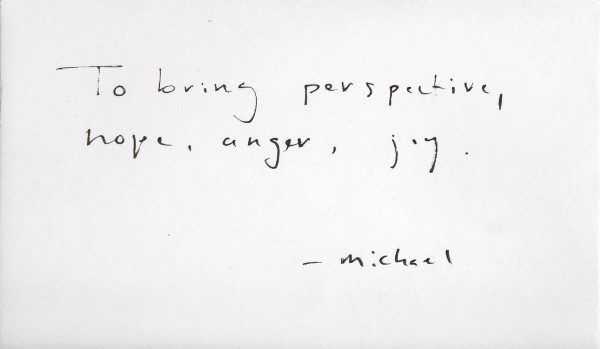 To bring perspective,
hope, anger, joy.
- michael